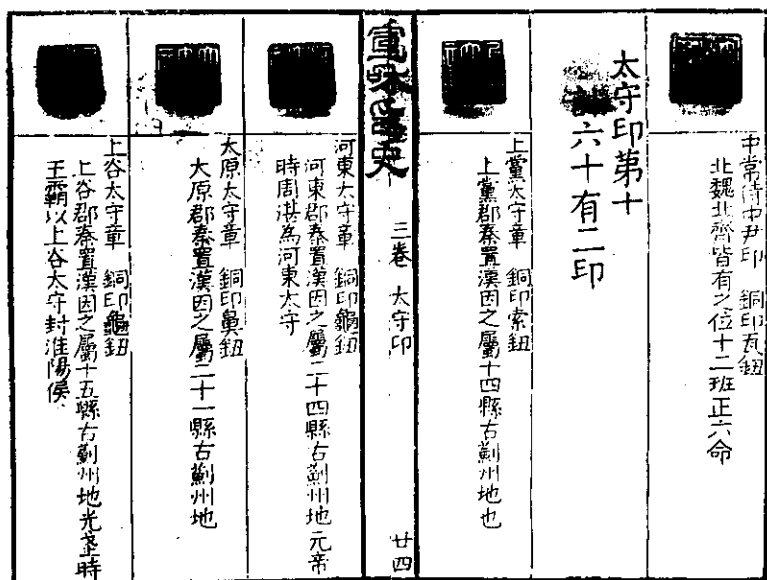 中常侍中尹印　銅印瓦鈕
北魏北齊皆有之位十二班正六命
太守印第十
六十有二印
上黨太守章　銅印索鈕
上黨郡秦置漢因之屬十四縣古蓟州地也
宣和印史　三卷　太守印　廿四
河東太守章　銅印龜鈕
河東郡秦置漢因之屬二十四縣古蓟州地元帝
時周湛為河東太守
太原太守章　銅印鼻鈕
大原郡秦置漢因之屬二十一縣古蓟州地
上谷太守章　銅印龜鈕
上谷郡秦置漢因之屬十五縣古蓟州地光武時
王霸以上谷太守封淮陽侯